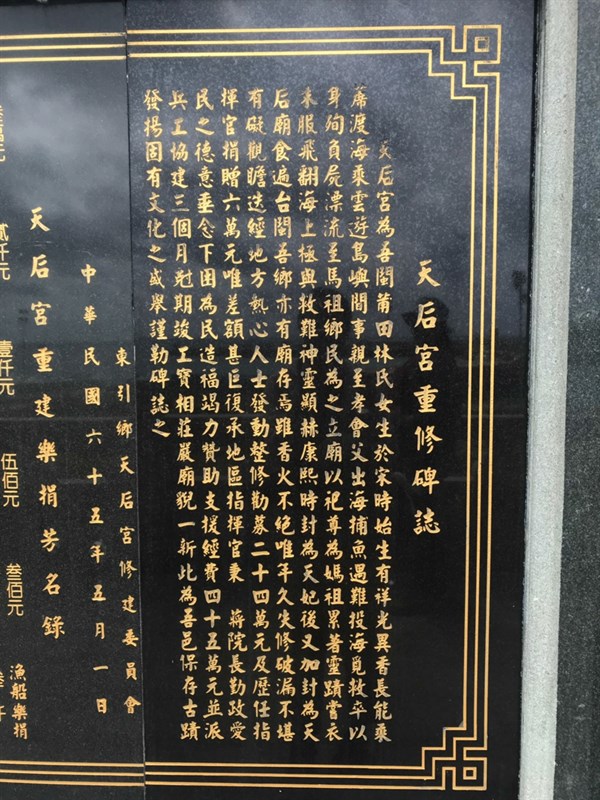 天后宮重修碑誌
天后宮為吾閩莆田林氏女生於宋時始生有祥光異香長能乘
蓆渡海乘雲遊島嶼間事親至孝會父出海捕魚遇難投海覓救卒以
身殉負屍漂流至馬祖鄉民為之立廟以祀尊為媽祖累著靈蹟嘗衣
朱服飛翻海上極與救難神靈顯赫康熙時封為天妃後又加封為天
后廟食遍台閩吾鄉亦有廟存焉雖香火不絕唯年久失修破漏不堪
有礙觀瞻迭經地方熱心人士發動整修勸募二十四萬元及歷任指
揮官捐贈六萬元唯差額甚巨復承地區指揮官秉 蔣院長勤政愛
民之德意垂念下困為民造福竭力贊助支援經費四十五萬元並派
兵工協建三個月剋期竣工寶相莊嚴廟貌一新此為吾邑保存古蹟
發揚固有文化之盛舉謹勒碑誌之
東引鄉天后宮修建委員會
中華民國六十五年五月一日
天后宮重建樂捐芳名錄
貳仟元
壹仟元
伍佰元
叁佰元
漁船樂捐